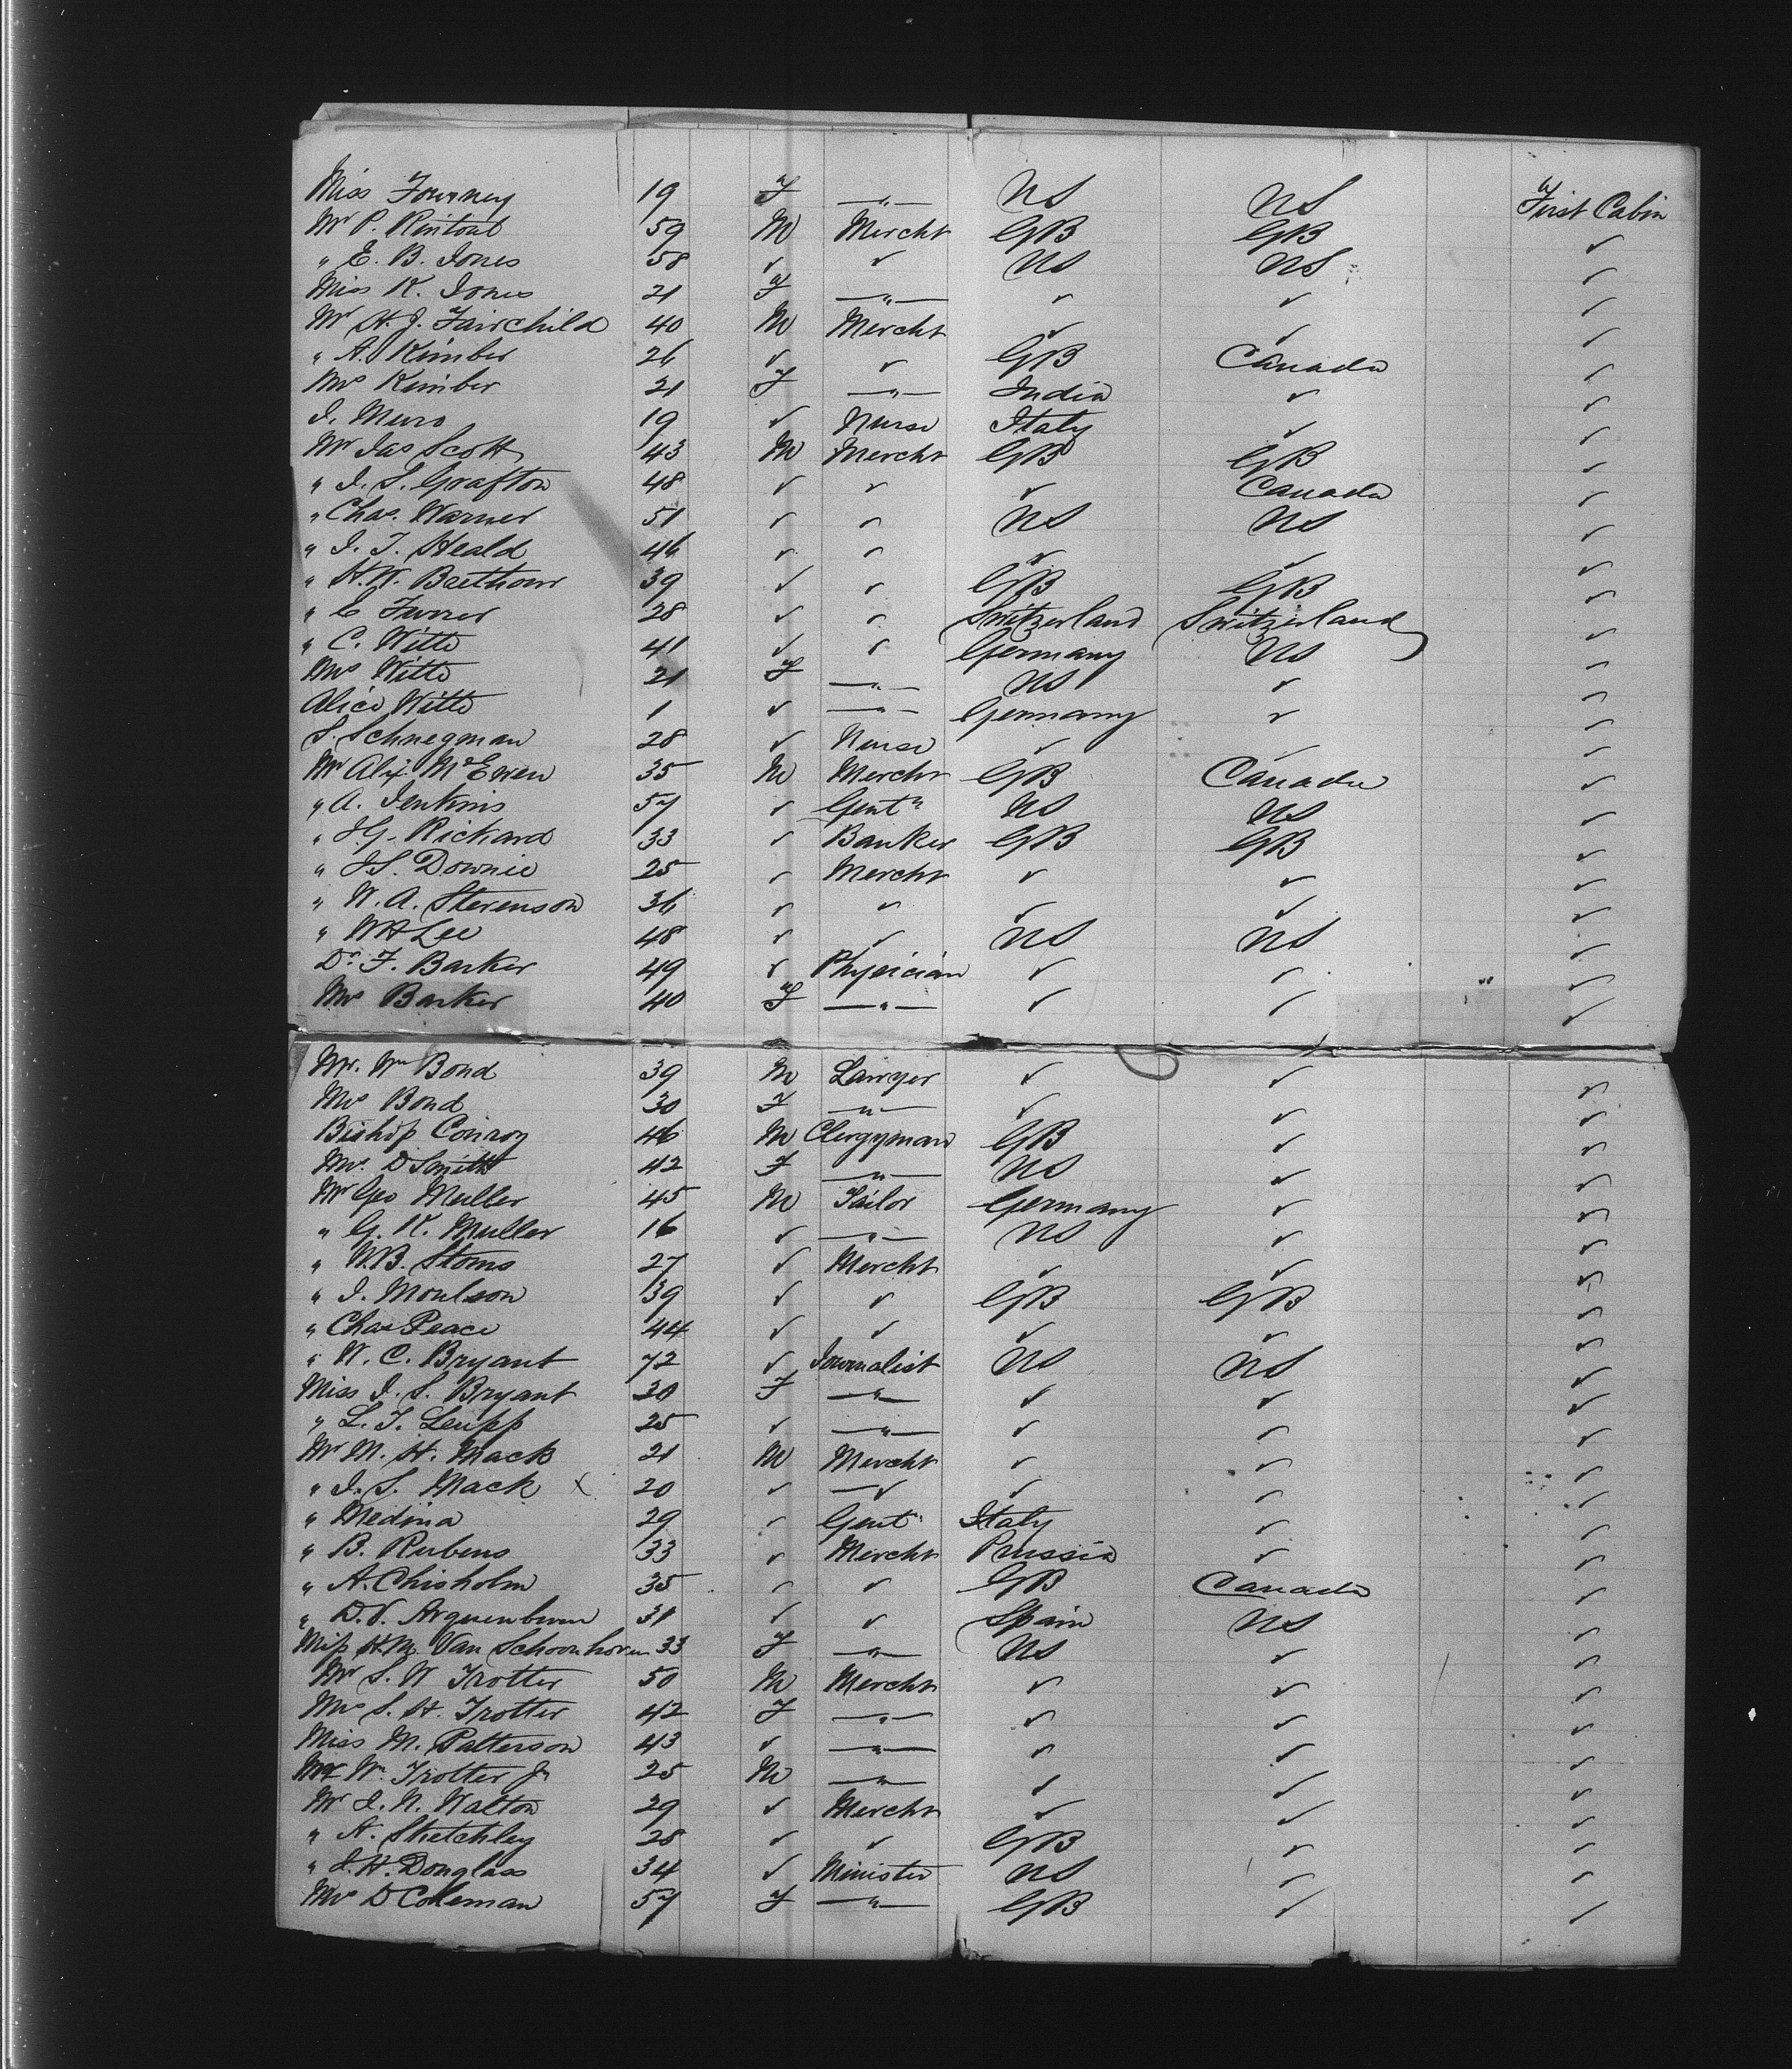 Miss Fourney 19 F —"— US US First Cabin
Mr P. Rintoul 59 M Mercht GB GB ✓
" E. B. Jones 58 ✓ ✓ US US ✓
Miss K. Jones 21 F —"— ✓ ✓ ✓
Mr H. J. Fairchild 40 M Mercht ✓ ✓ ✓
" A. Kimber 26 ✓ ✓ GB Canada ✓
Mrs Kimber 21 F —"— India ✓ ✓
J. Muro 19 ✓ Nurse Italy ✓ ✓
Mr Jas Scott 43 M Mercht GB GB ✓
" J. S. Grafton 48 ✓ ✓ ✓ Canada ✓
" Chas. Warner 51 ✓ ✓ US US ✓
" J. T. Heald 46 ✓ ✓ ✓ ✓ ✓
" H. W. Brethour 39 ✓ ✓ GB GB ✓
" E Furrer 28 ✓ ✓ Switzerland Switzerland ✓
" C. Witte 41 ✓ ✓ Germany US ✓
Mrs Witte 21 F —"— US ✓ ✓
Alice Witte 1 ✓ —"— Germany ✓ ✓
S. Schnegman 28 ✓ Nurse ✓ ✓ ✓
Mr Alex. McEwen 35 M Mercht GB Canada ✓
" A. Jenkins 57 ✓ Gentn US US ✓
" J.G. Rickard 33 ✓ Banker GB GB ✓
" J.S. Downie 25 ✓ Mercht ✓ ✓ ✓
" W. A. Stevenson 36 ✓ ✓ ✓ ✓ ✓
" W H Lee 48 ✓ ✓ US US ✓
Dr. F. Barker 49 ✓ Physician ✓ ✓ ✓
Mrs Barker 40 F —"— ✓ ✓ ✓
Mr. Wm Bond 39 M Lawyer ✓ ✓ ✓
Mrs Bond 30 F —"— ✓ ✓ ✓
Bishop Conroy 46 M Clergyman GB ✓ ✓
Mrs. D Smith 42 F —"— US ✓ ✓
Mr Geo Muller 45 M Tailor Germany ✓ ✓
" G. K. Muller 16 ✓ —"— US ✓ ✓
" W.B. Storms 27 ✓ Mercht ✓ ✓ ✓
" J. Moulson 39 ✓ ✓ GB GB ✓
" Chas Peace 44 ✓ ✓ ✓ ✓ ✓
" W. C. Bryant 72 ✓ Journalist US US ✓
Miss J. S. Bryant 30 F —"— ✓ ✓ ✓
" L. T. Leupp 25 ✓ —"— ✓ ✓ ✓
Mr M. H. Mack 21 M Mercht ✓ ✓ ✓
" J. S. Mack x 20 ✓ —✓ ✓ ✓ ✓
" Medina 29 ✓ Gent Italy ✓ ✓
" B. Rubens 33 ✓ Mercht Prussia ✓ ✓
" A. Chisholm 35 ✓ ✓ GB Canada ✓
" D.V. 31 ✓ ✓ Spain US ✓
Miss H.M. Van Schoonhoven 33 F —"— US ✓ ✓
Mr S. W Trotter 50 M Mercht ✓ ✓ ✓
Mrs S. H. Trotter 42 F —"— ✓ ✓ ✓
Miss M. Patterson 43 ✓ —"— ✓ ✓ ✓
Mr Wm Trotter Jr 25 M —"— ✓ ✓ ✓
Mr J. N. Walton 29 ✓ Mercht ✓ ✓ ✓
" A. Sketchley 28 ✓ ✓ GB ✓ ✓
" J. H. Douglass 34 ✓ Minister US ✓ ✓
Mrs D Colleman 57 F —"— GB ✓ ✓